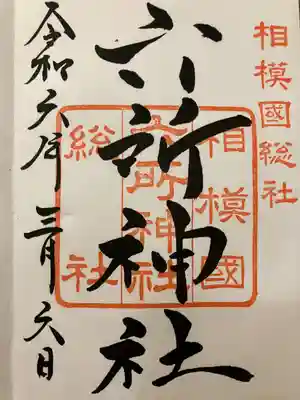 相模國総社
六所神社
相模國
六所神社
総社
令和六年三月六日